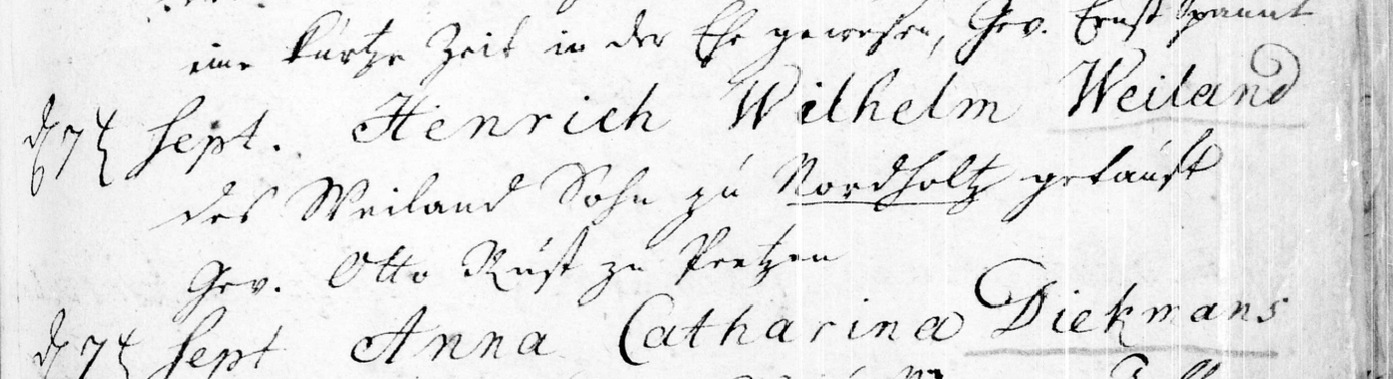 eine kurtze Zeit in der Ehe gewesen, Gev. Ernst Spannt
d 7t Sept. Henrich Wilhelm Weiland
des Weiland Sohn zu Nordholtz getauft
Gev. Otto Rust zu Peetzen
d 7t Sept Anna Catharina Diekmans